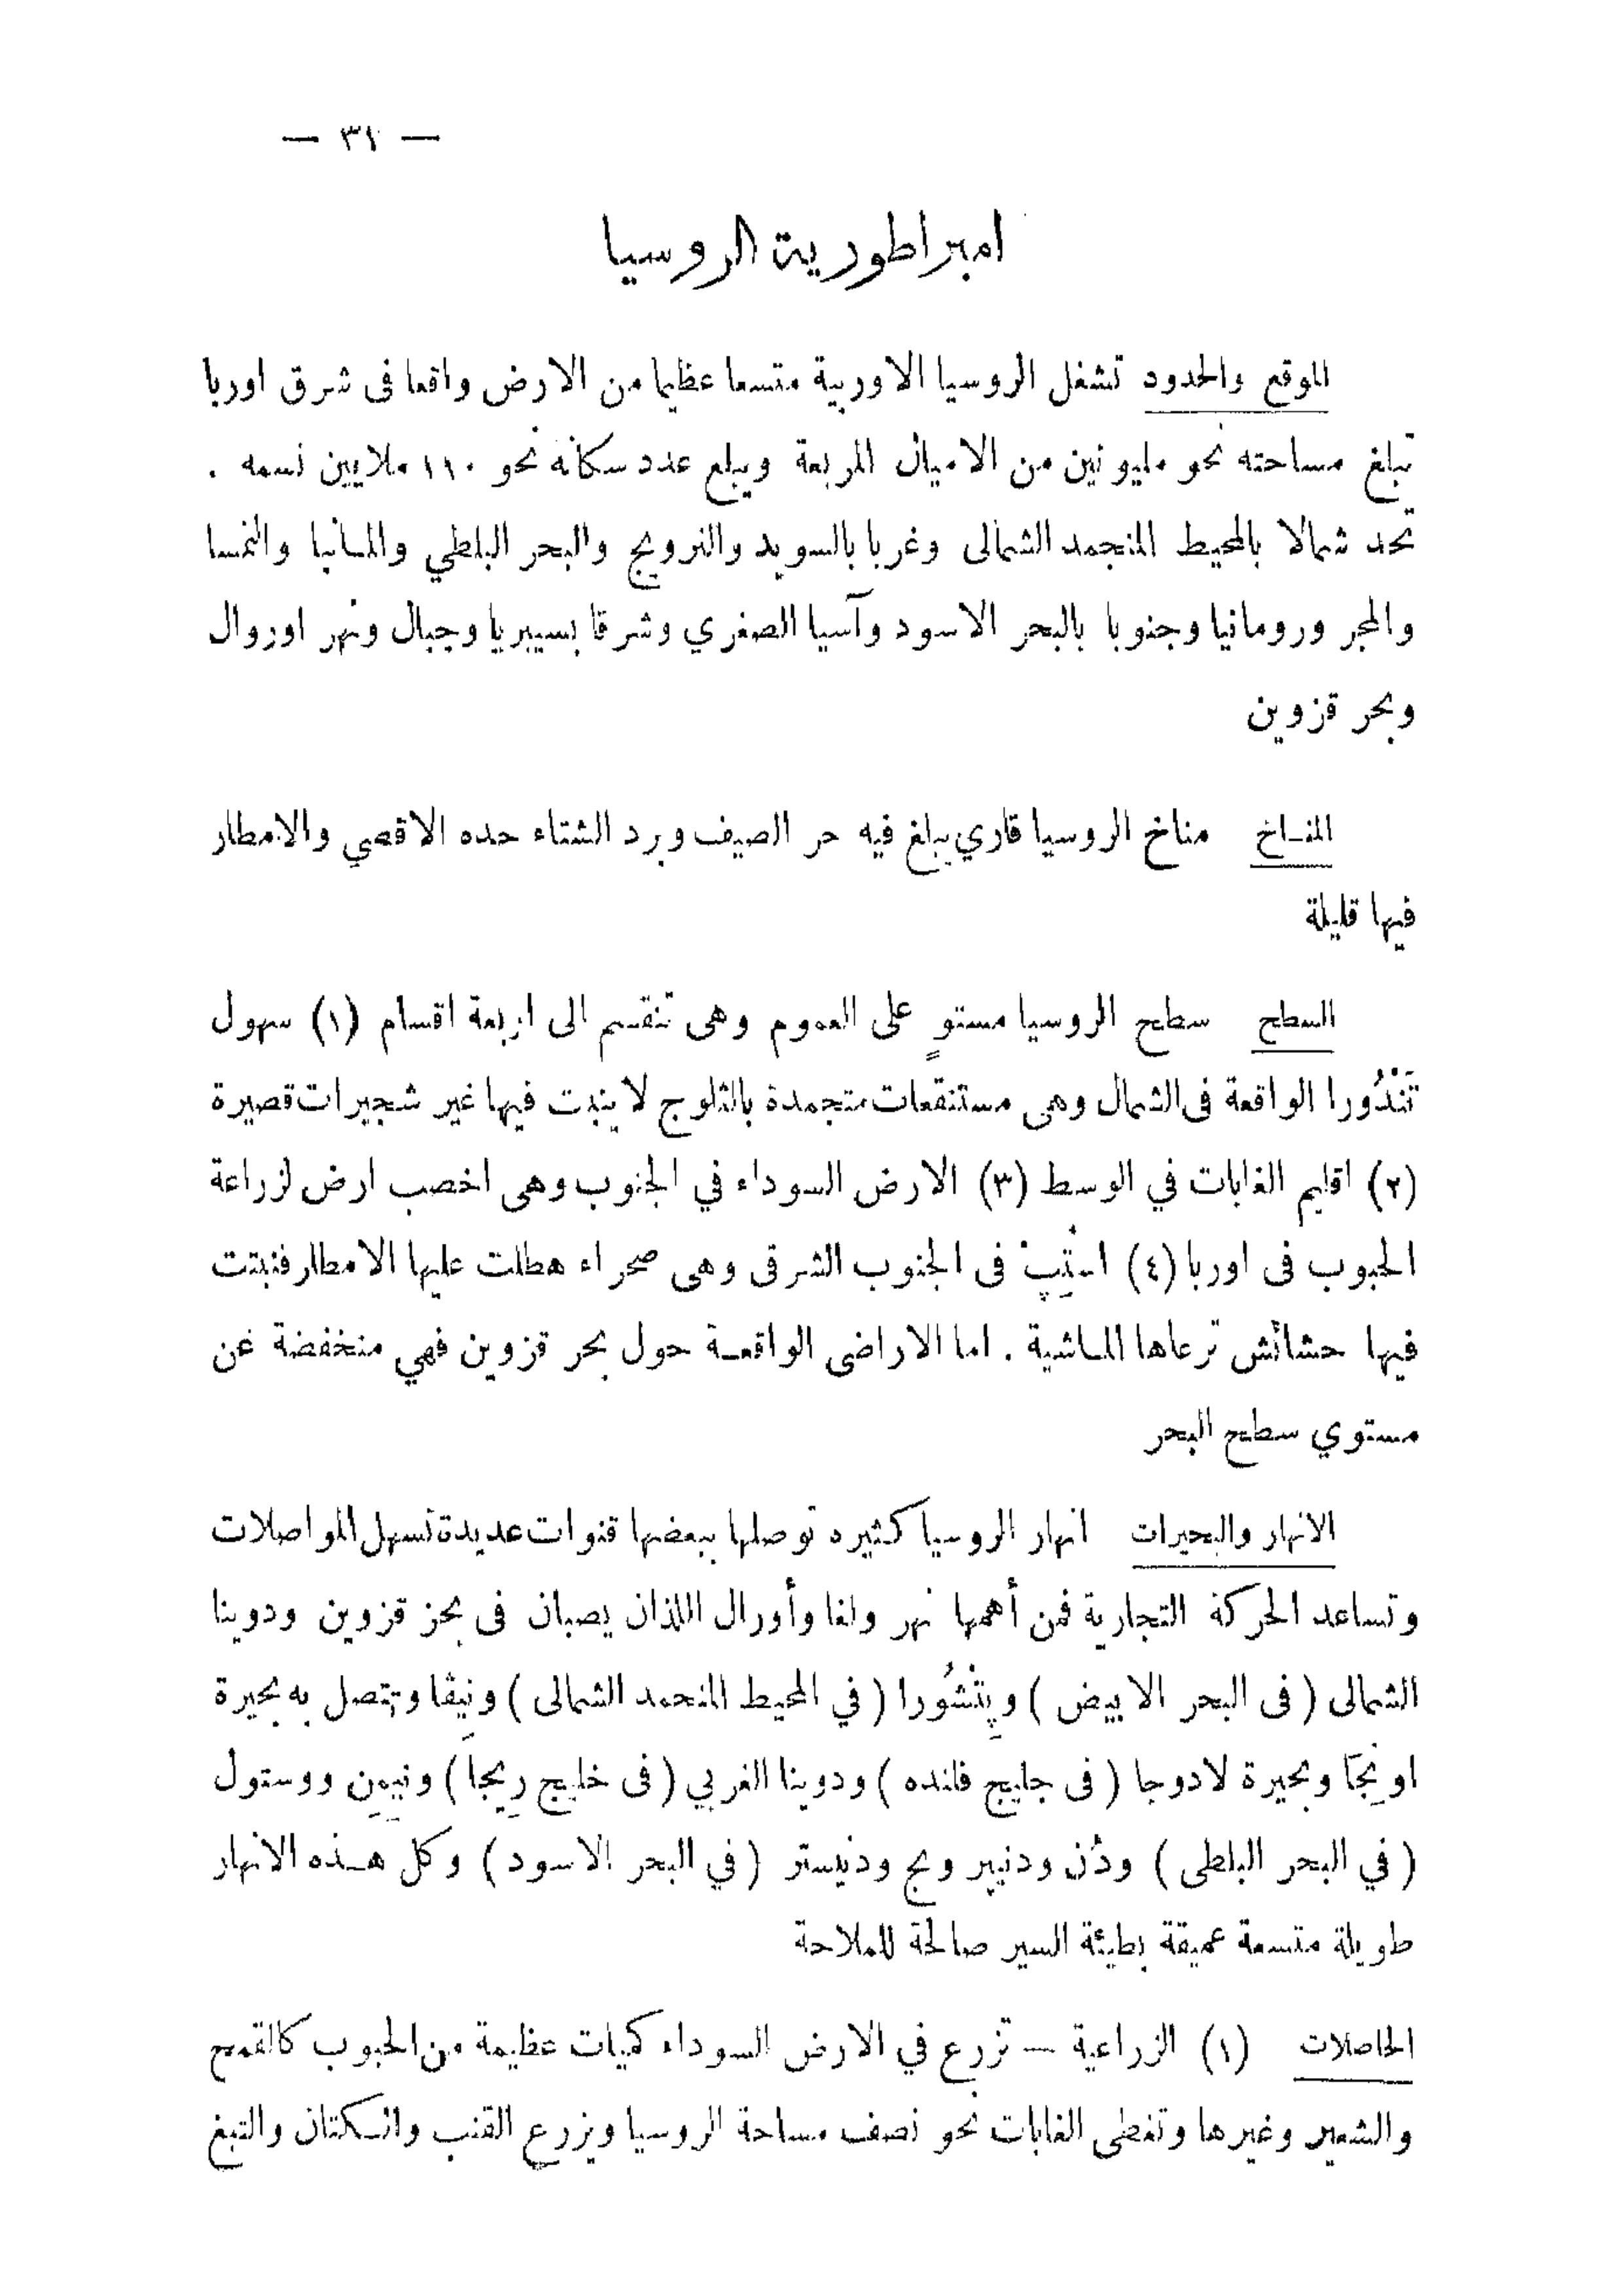 — ٣١ —
امبراطورية الروسيا
الموقع والحدود تشغل الروسيا الاوربية متسعا عظيما من الارض واقعا فى شرق اوربا
تبلغ مساحته نحو مليونين من الاميال المربعة ويبلغ عدد سكانه نحو ١١٠ ملايين نسمه .
تحد شمالا بالمحيط المنجمد الشمالى وغربا بالسويد والنرويج والبحر البلطي والمانيا والنمسا
والمجر ورومانيا وجنوبا بالبحر الاسود وآسيا الصغري وشرقا بسيبريا وجبال ونهر اوروال
وبحر قزوين
المناخ مناخ الروسيا قاري يبلغ فيه حر الصيف وبرد الشتاء حده الاقصي والامطار
فيها قليلة
السطح سطح الروسيا مستوٍ على العموم وهى تنقسم الى اربعة اقسام (١) سهول
تَنْدُورا الواقعة فى الشمال وهى مستنقعات متجمدة بالثلوج لا ينبت فيها غير شجيرات قصيرة
(٢) اقليم الغابات في الوسط (٣) الارض السوداء في الجنوب وهى اخصب ارض لزراعة
الحبوب فى اوربا (٤) استِپْ فى الجنوب الشرقى وهى صحراء هطلت عليها الامطار فنبتت
فيها حشائش ترعاها الماشية . اما الاراضى الواقعة حول بحر قزوين فهي منخفضة عن
مستوي سطح البحر
الانهار والبحيرات انهار الروسيا كثيره توصلها ببعضها قنوات عديدة تسهل المواصلات
وتساعد الحركة التجارية فمن أهمها نهر ولغا وأورال اللذان يصبان فى بحر قزوين ودوينا
الشمالى ( فى البحر الابيض ) وپِتْشُورا ( في المحيط المنجمد الشمالى ) ونِيڤا وتتصل به بحيرة
اونِجَا وبحيرة لادوجا ( فى جليج فلنده ) ودوينا الغربي ( فى خليج رِيجا ) ونيِمِن ووستول
( في البحر البلطى ) ودُن ودنيپر وبج ودنيستر ( في البحر الاسود ) وكل هذه الانهار
طويلة متسعة عميقة بطيئة السير صالحة للملاحة
الحاصلات (١) الزراعية — تزرع في الارض السوداء كميات عظيمة من الحبوب كالقمح
والشعير وغيرها وتغطى الغابات نحو نصف مساحة الروسيا ويزرع القنب والكتان والتبغ